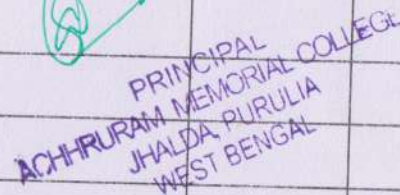 PRINCIPAL
ACHHRURAM MEMORIAL COLLEGE
JHALDA, PURULIA
WEST BENGAL